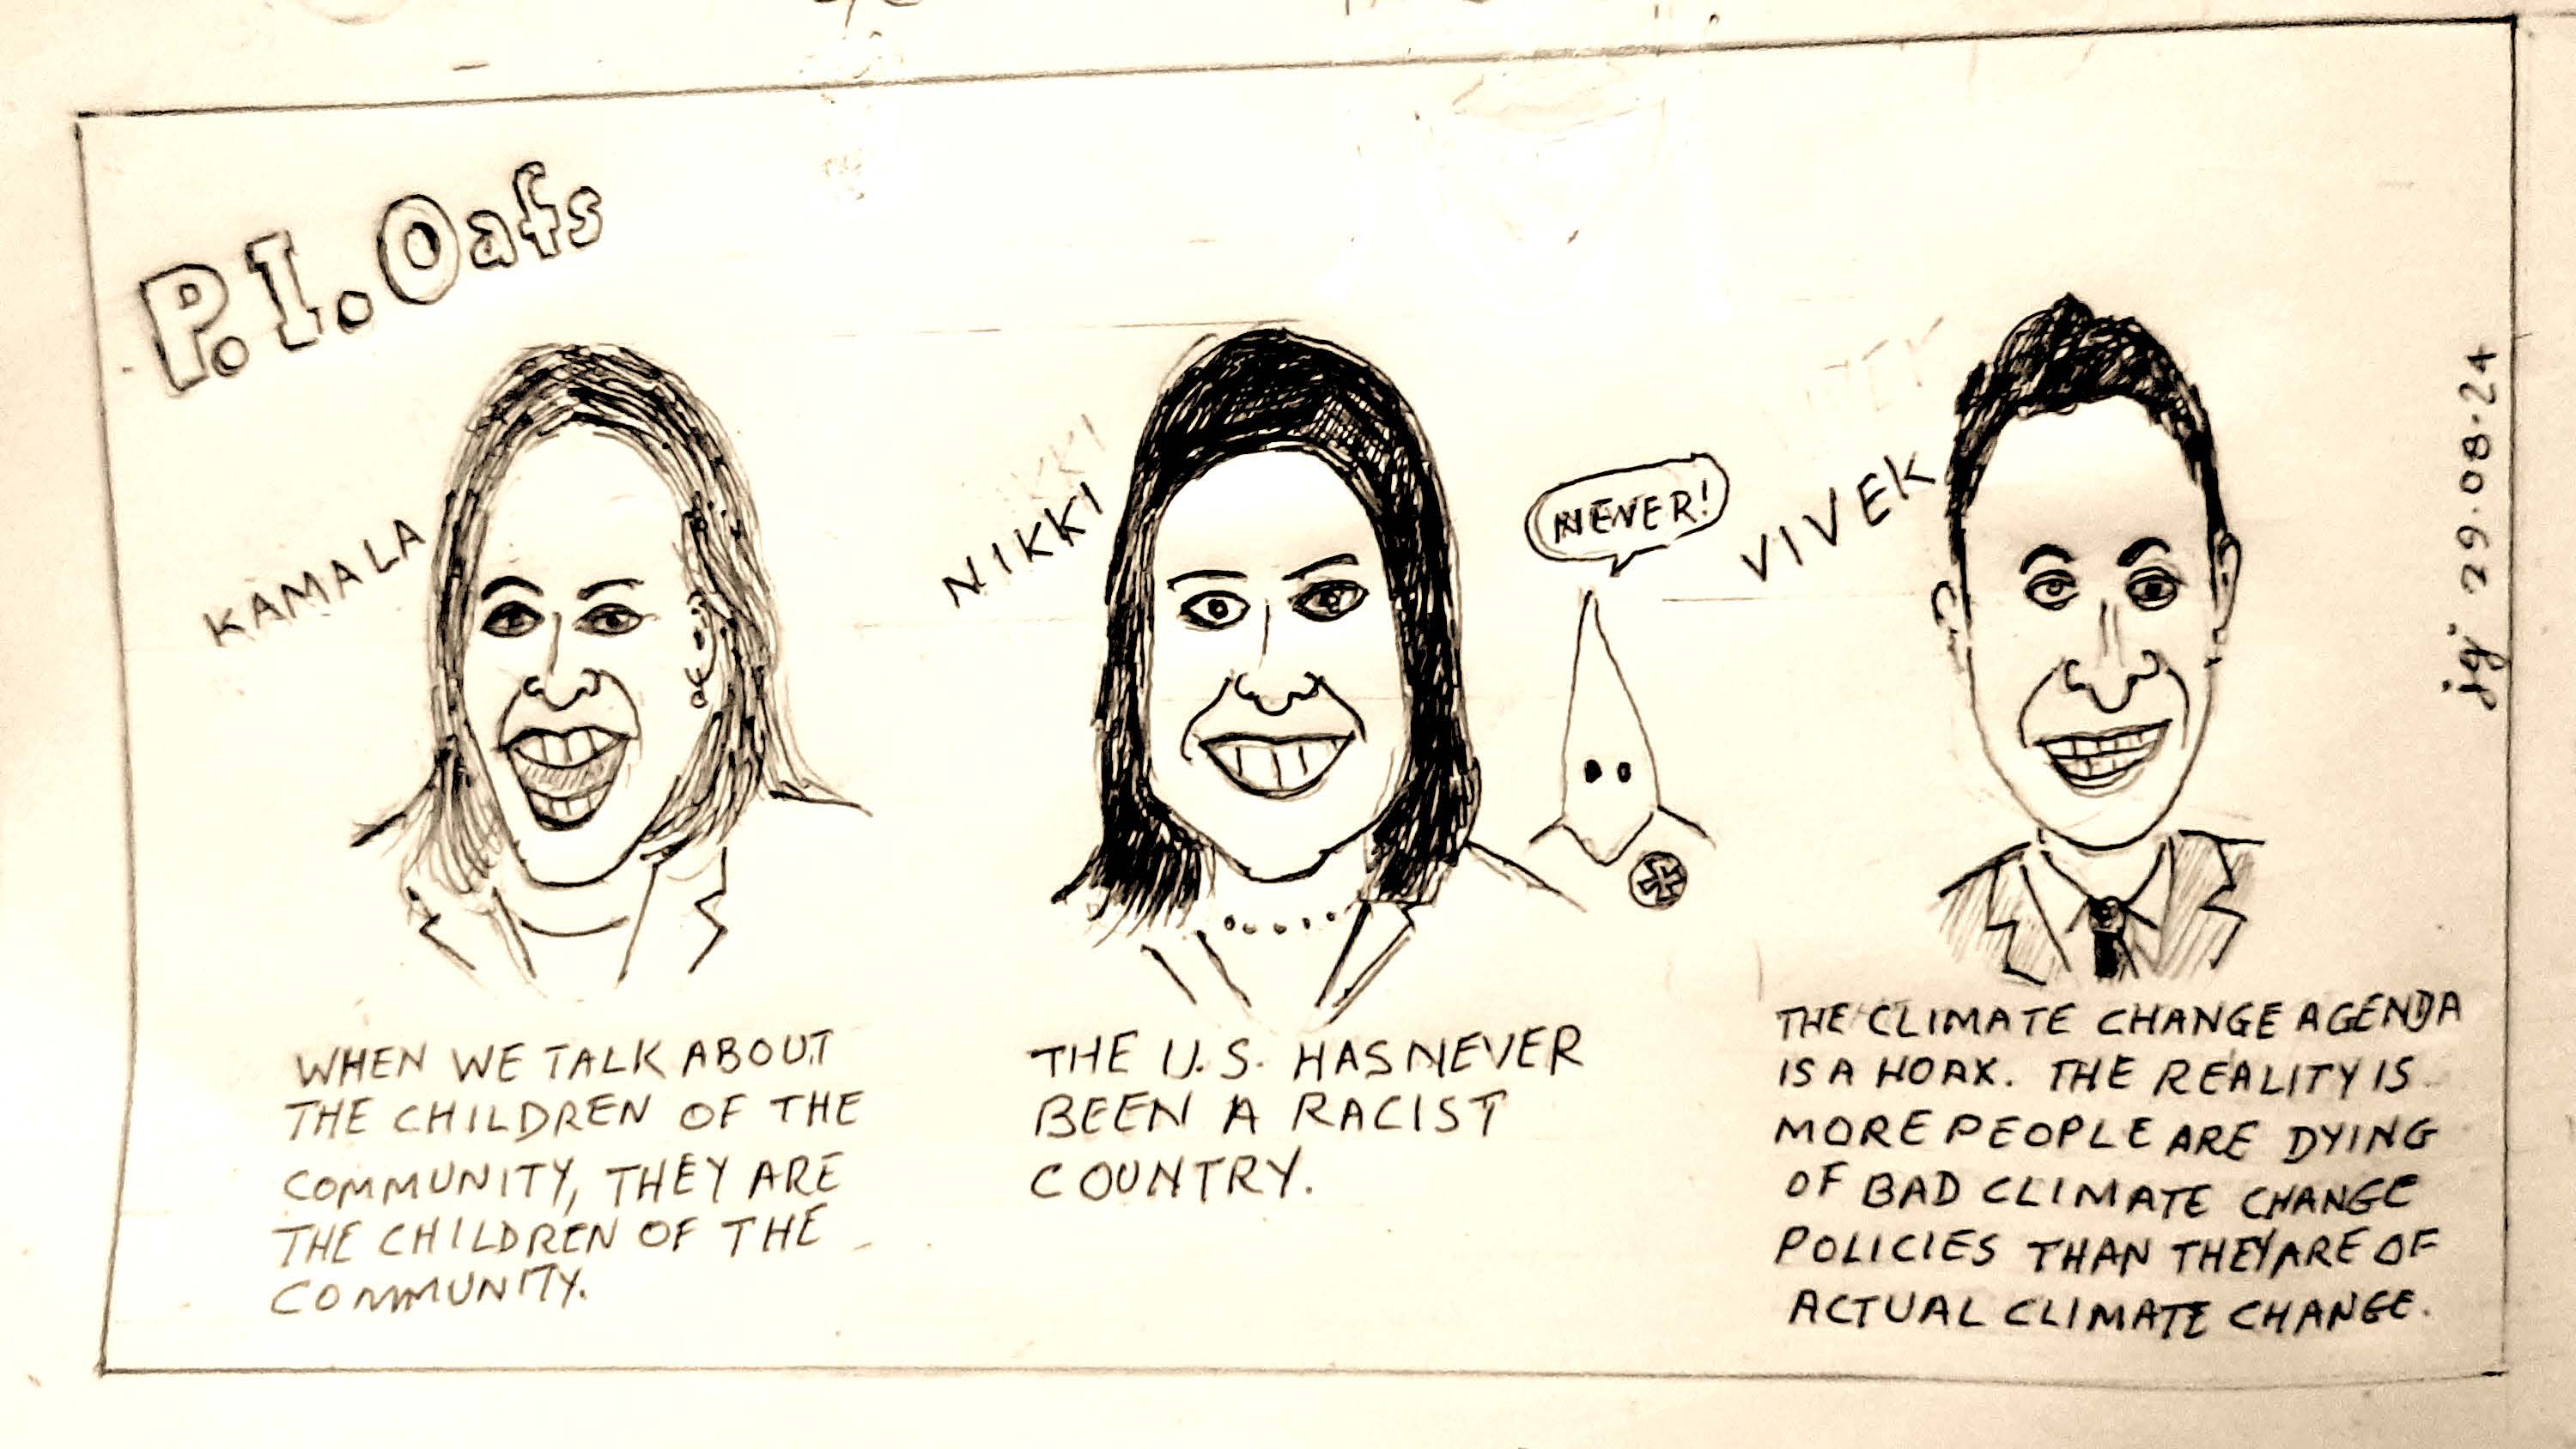 P.I. Oafs
KAMALA
WHEN WE TALK ABOUT
THE CHILDREN OF THE
COMMUNITY, THEY ARE
THE CHILDREN OF THE
COMMUNITY.
NIKKI
THE U.S. HAS NEVER
BEEN A RACIST
COUNTRY.
NEVER!
VIVEK
THE CLIMATE CHANGE AGENDA
IS A HOAX. THE REALITY IS
MORE PEOPLE ARE DYING
OF BAD CLIMATE CHANGE
POLICIES THAN THEY ARE OF
ACTUAL CLIMATE CHANGE.
jgj 29.08.24